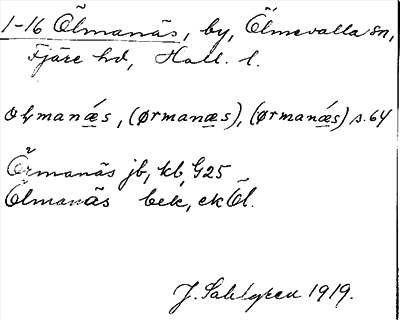 1-16 Ölmanäs, by, Ölmevalla sn,
Fjäre hd, Hall. l.
(ørmanæs), (ørmanǽs) s. 64
Örmanäs jb, kb, G25
Ölmanäs bek, ekÖl.
J. Sahlgren 1919.